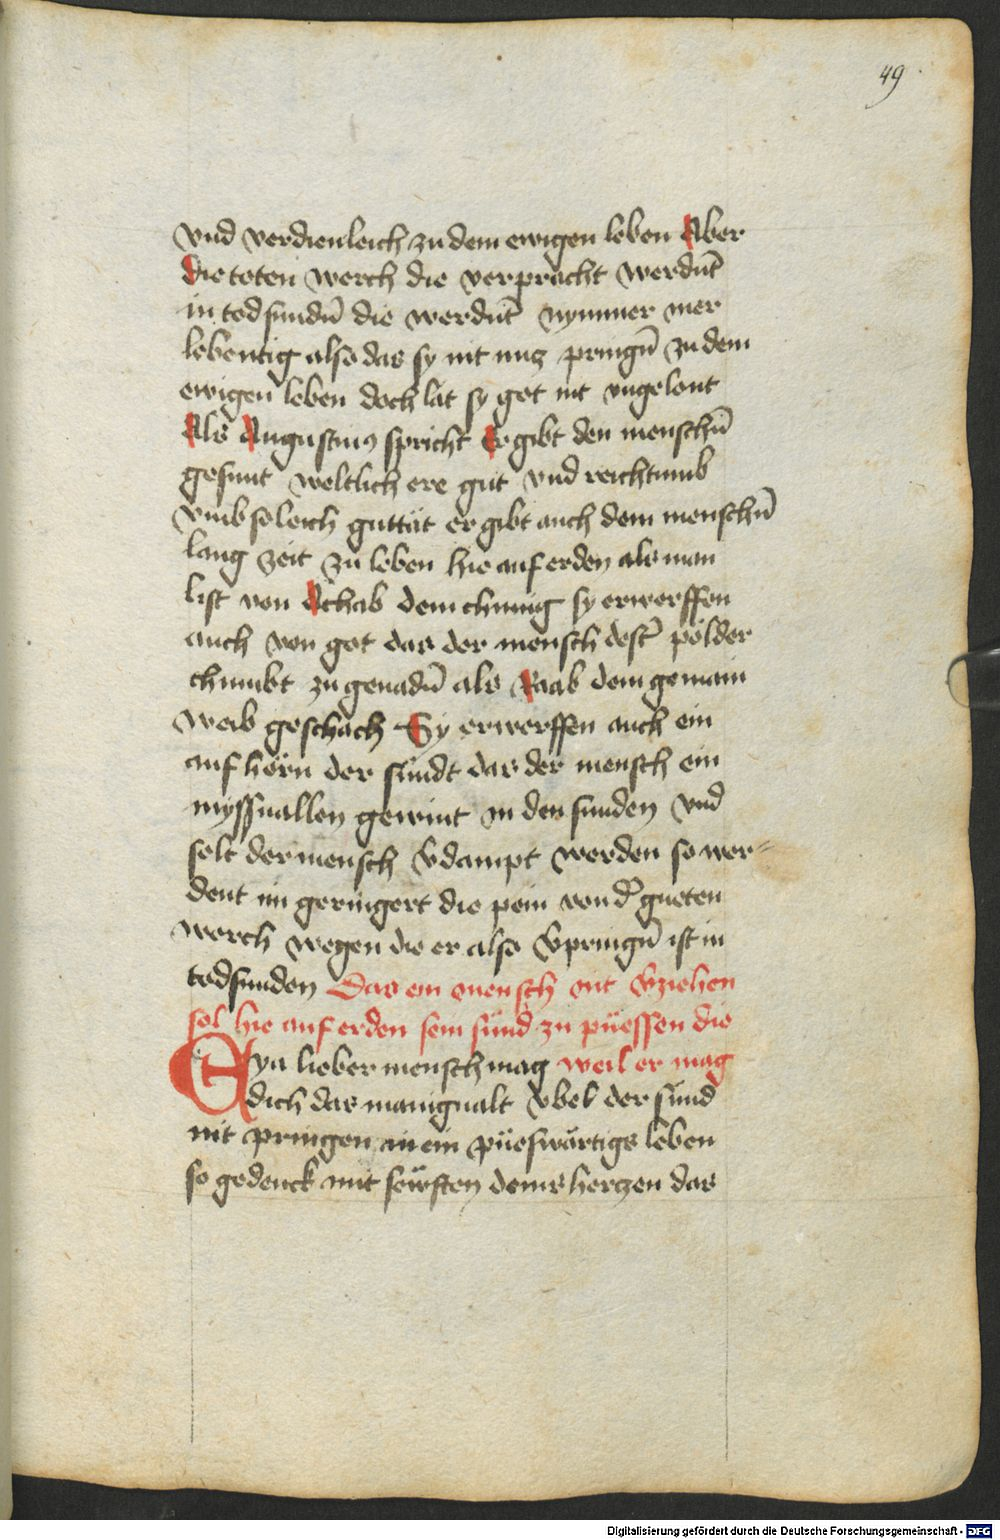 49
vnd verdienleich zu dem ewigen leben Aber
die toten werch die verpracht werdn̄t
in todsundn̄ die werdn̄t nymmer mer
lebentig also das sy nit nucz pringn̄ zu dem
ewigen leben doch lat sy got nit vngelont
Als Augustinus spricht Er gibt den menschn̄
gesunt weltlich ere gut vnd reichtumb
vmb soleich guttät er gibt auch dem menschn̄
lang zeit zu leben hie auf erden als man
list von Achab dem chunig sy erwerffen
auch von got das der mensch dest̄ pölder
chumbt zu genadn̄ als Raab dem gemain
weib geschach Sy erwerffen auch ein
auf hörn der sündt das der mensch ein
myssuallen gewint in den sunden vnd
solt der mensch v̄dampt werden so wer-
dent im geringert die pein von d̄ gueten
werch wegen die er also v̄pringn̄ ist in
todsunden Das ein mensch nit v̄ziehen
sol hie auf erden sein sünd zu püessen die
Eya lieber mensch mag weil er mag
dich das manigualt vbel der sünd
nit pringen in ein püeswärtigs leben
so gedenck mit sewften deins herczen das
Digitalisierung gefördert durch die Deutsche Forschungsgemeinschaft - DFG